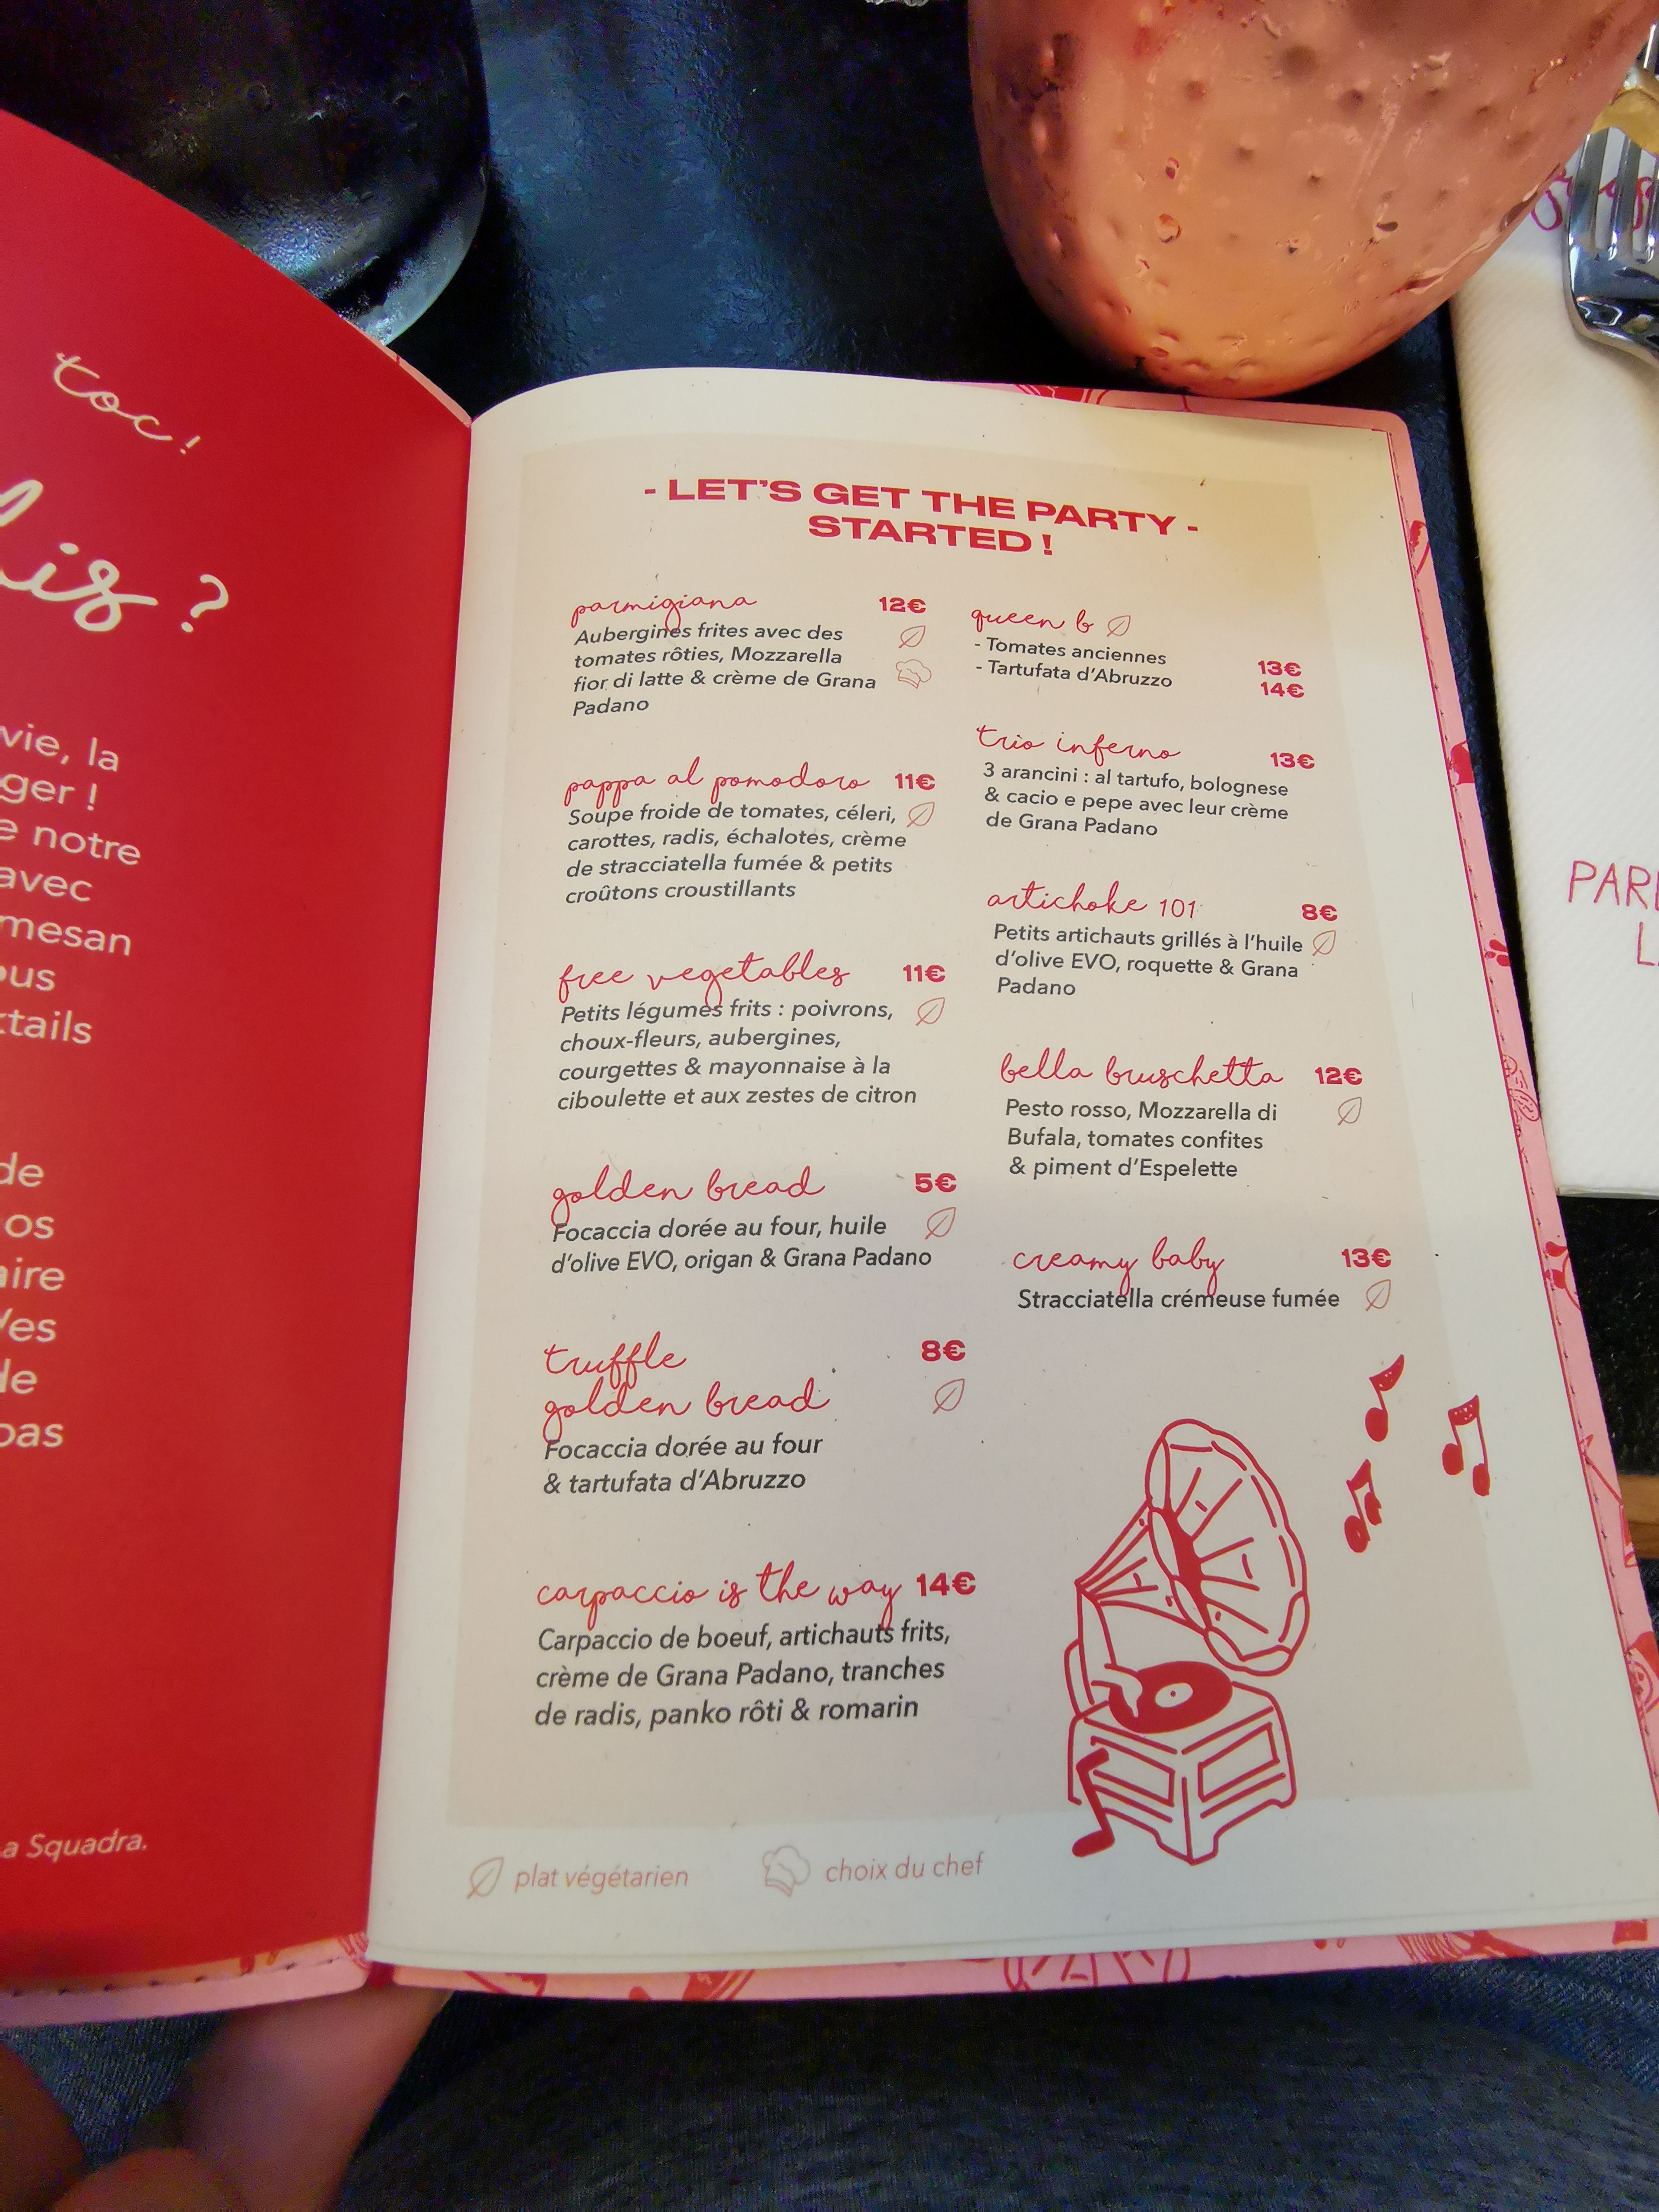 toc!
?
vie, la
ger !
notre
avec
ous
de
os
pas
a Squadra.
- LET'S GET THE PARTY -
STARTED !
parmigiana 12€
Aubergines frites avec des
tomates rôties, Mozzarella
fior di latte & crème de Grana
Padano
pappa al pomodoro 11€
Soupe froide de tomates, céleri,
carottes, radis, échalotes, crème
de stracciatella fumée & petits
croûtons croustillants
free vegetables 11€
Petits légumes frits : poivrons,
choux-fleurs, aubergines,
courgettes & mayonnaise à la
ciboulette et aux zestes de citron
golden bread 5€
Focaccia dorée au four, huile
d'olive EVO, origan & Grana Padano
truffle 8€
golden bread
Focaccia dorée au four
& tartufata d'Abruzzo
carpaccio is the way 14€
Carpaccio de boeuf, artichauts frits,
crème de Grana Padano, tranches
de radis, panko rôti & romarin
queen b
- Tomates anciennes 13€
- Tartufata d'Abruzzo 14€
trio inferno 13€
3 arancini : al tartufo, bolognese
& cacio e pepe avec leur crème
de Grana Padano
artichoke 101 8€
Petits artichauts grillés à l'huile
d'olive EVO, roquette & Grana
Padano
bella bruschetta 12€
Pesto rosso, Mozzarella di
Bufala, tomates confites
& piment d'Espelette
creamy baby 13€
Stracciatella crémeuse fumée
plat végétarien choix du chef